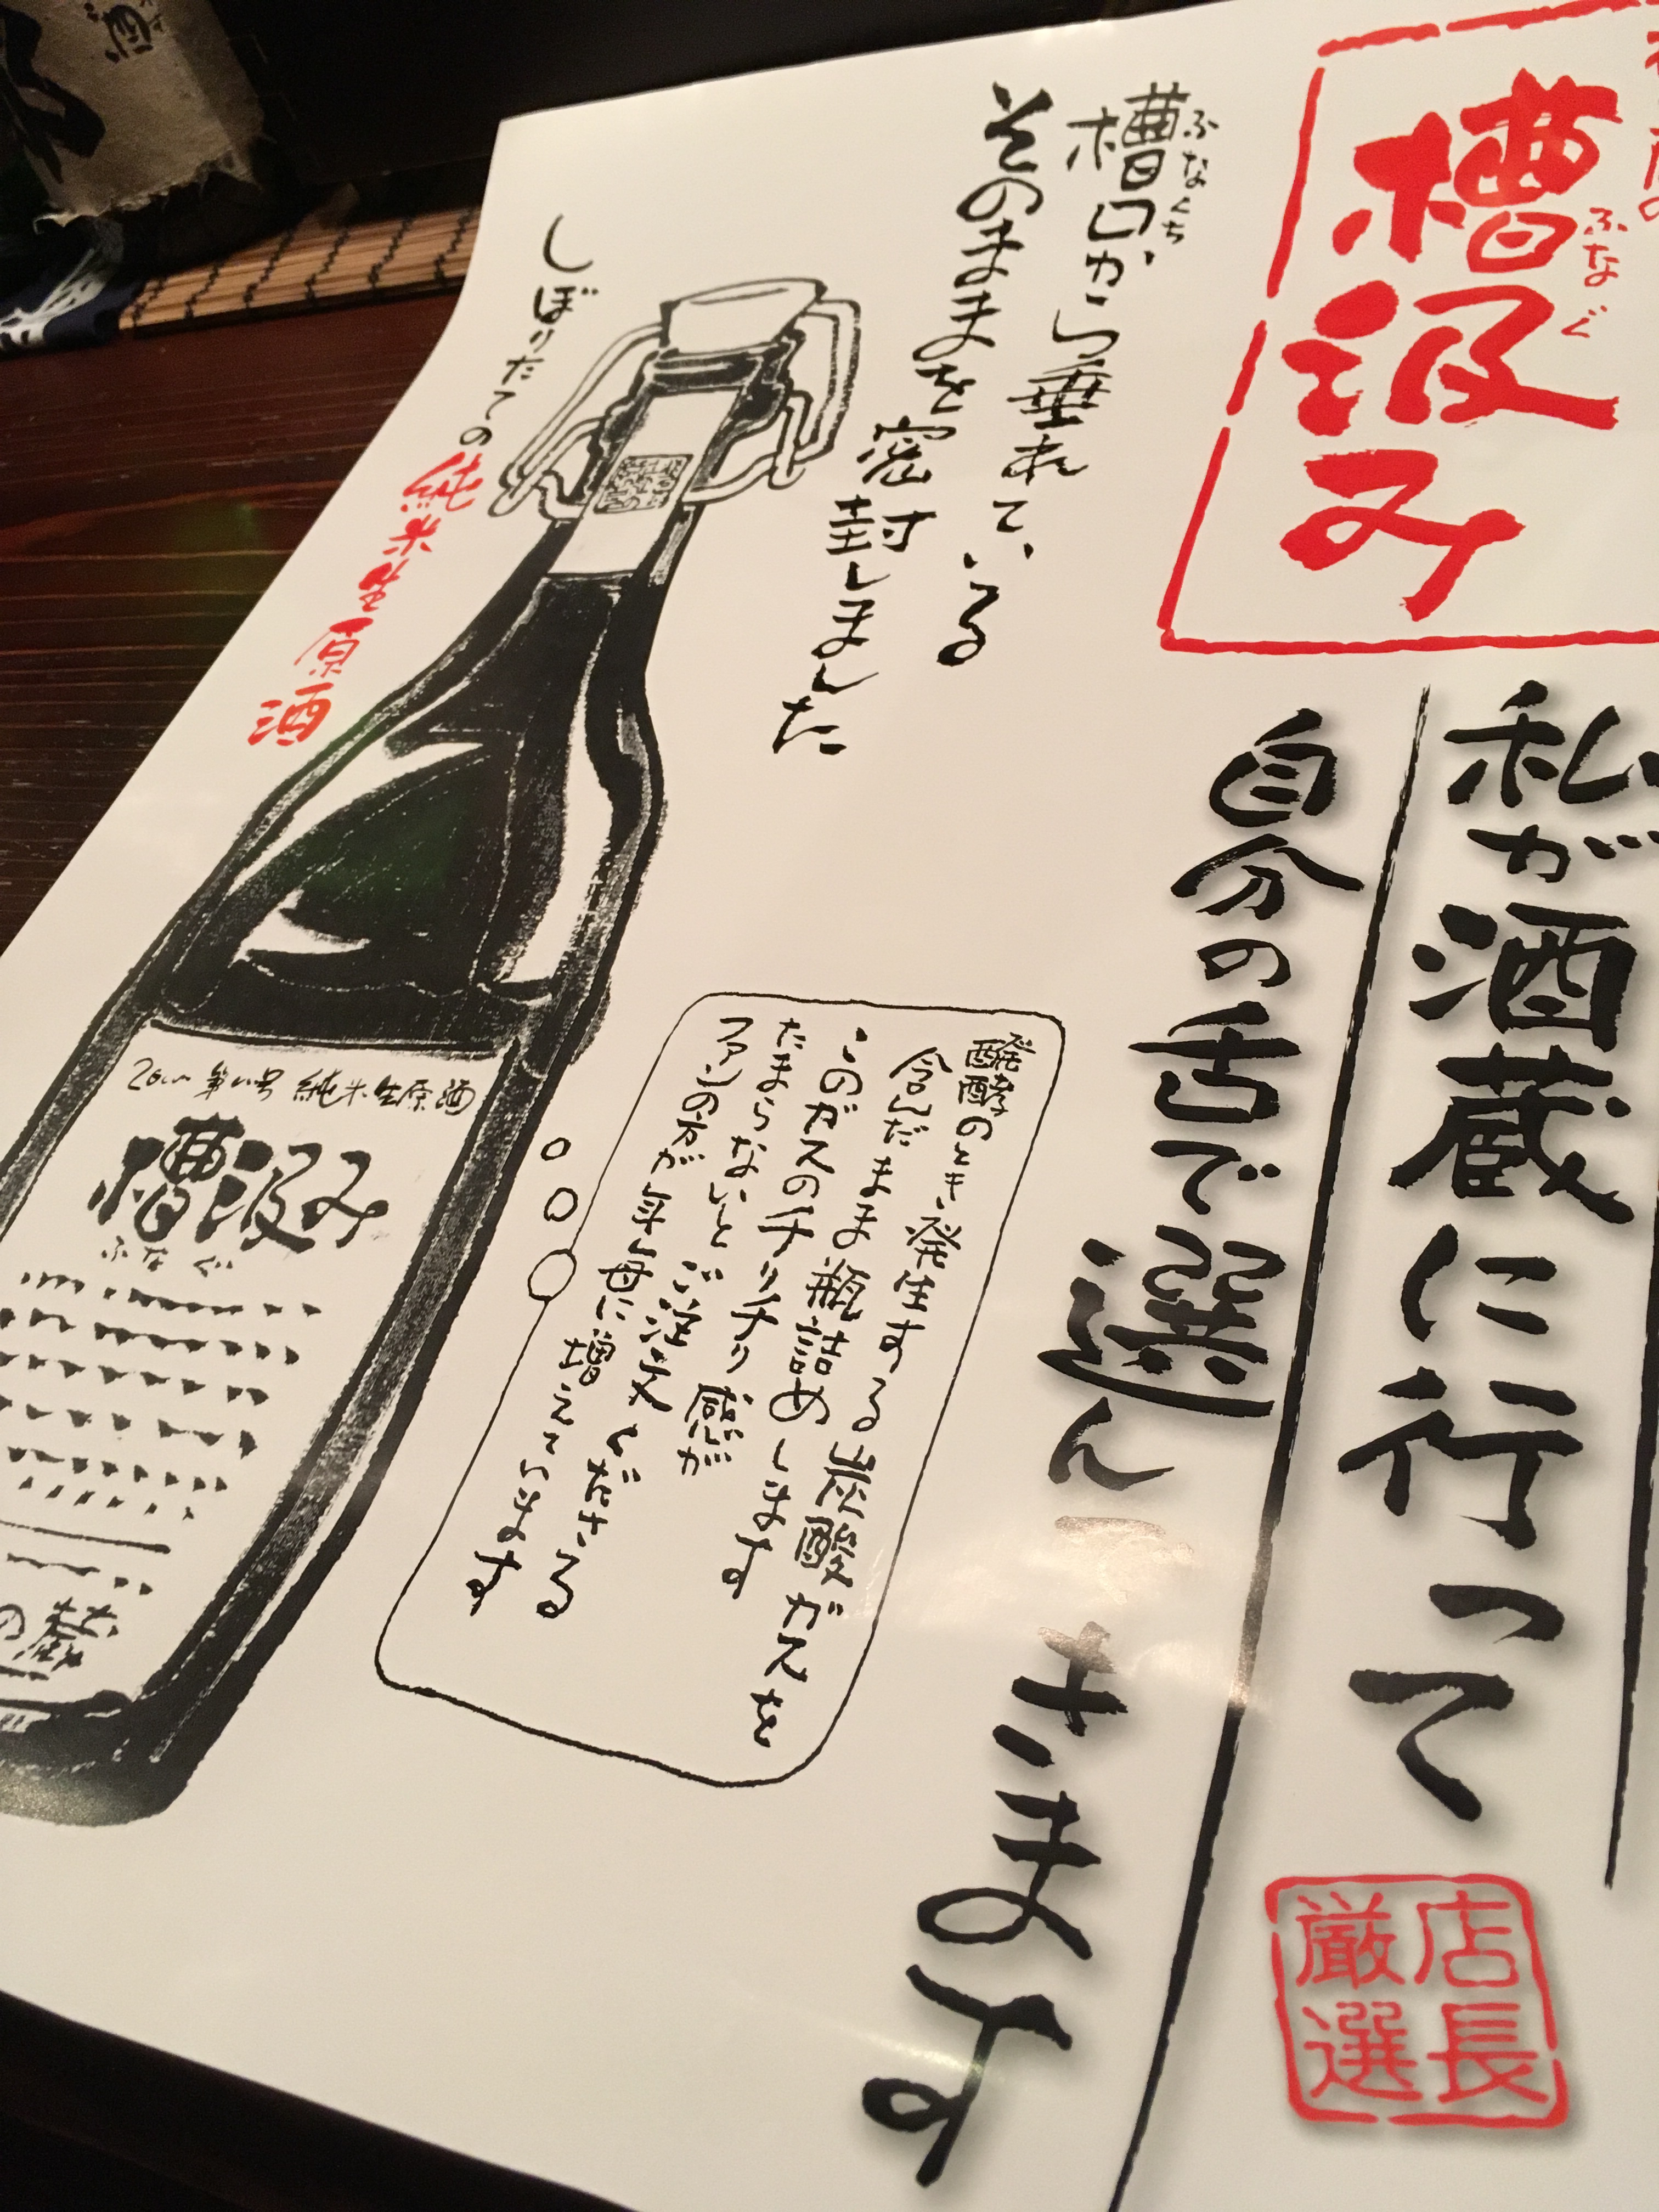 槽汲み
ふなぐ
私が酒蔵に行って
自分の舌で選んできます
店長
厳選
槽口から垂れている
ふなくち
そのままを密封しました
しぼりたての純米生原酒
醗酵のとき発生する炭酸ガスを
含んだまま瓶詰めします
このガスのチリチリ感が
たまらないとご注文くださる
ファンの方が年毎に増えています
純米生原酒
槽汲み
ふなぐ